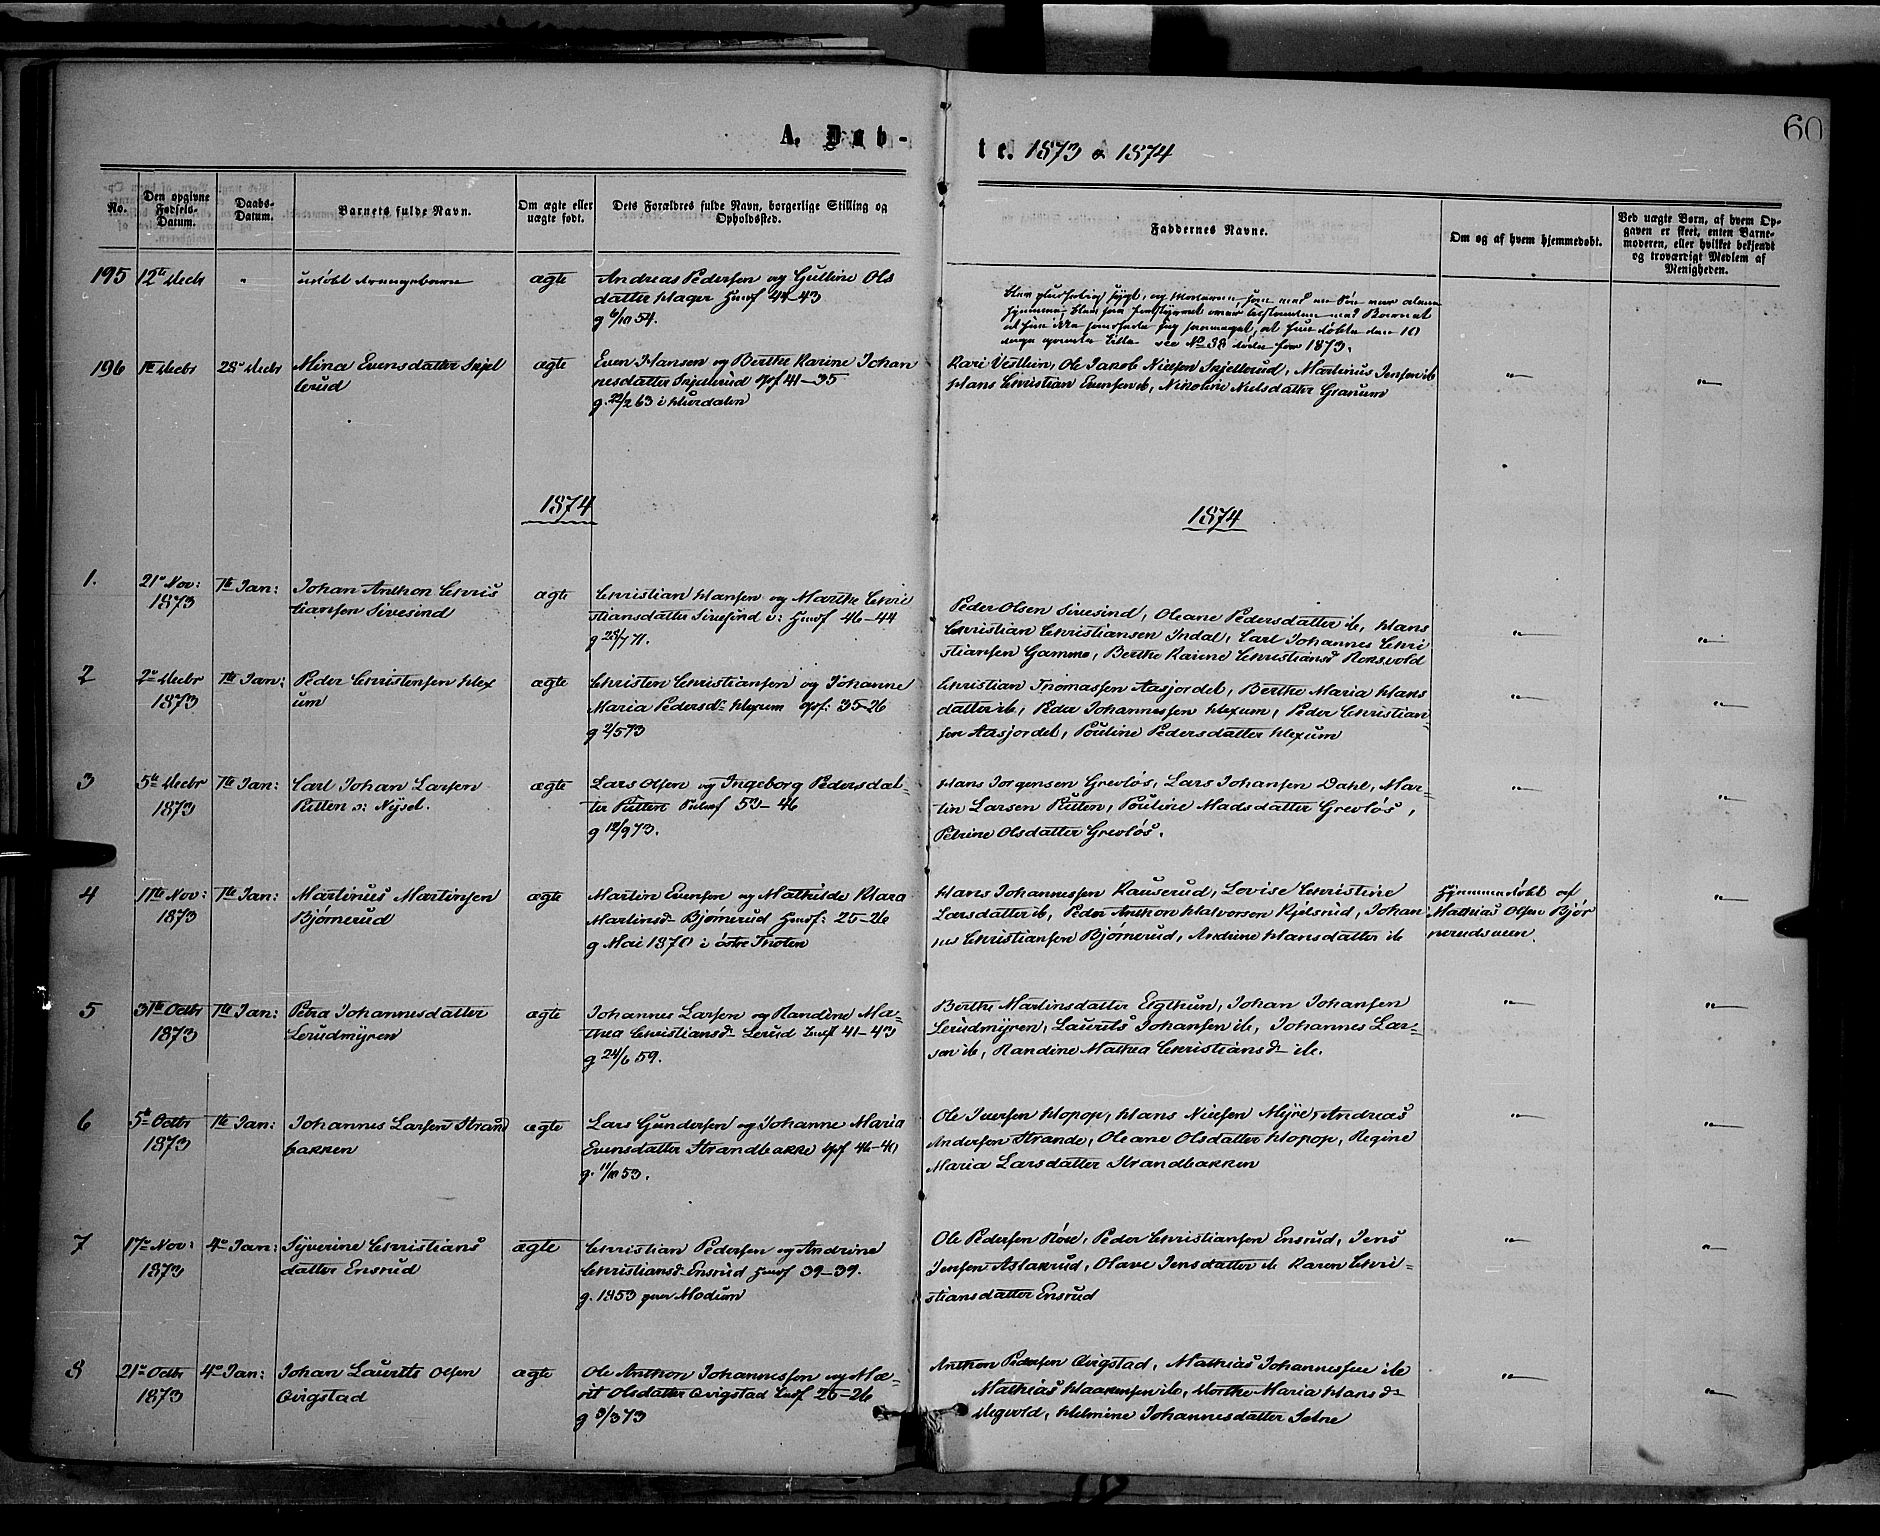 60
A. Døb-
te. 1873 & 1874
No.
Den opgivne Fødsels-Datum.
Daabs-Datum.
Barnets fulde Navn.
Om ægte eller uægte født.
Dets Forældres fulde Navn, borgerlige Stilling og Opholdssted.
Faddernes Navne.
Om og af hvem hjemmedøbt.
Ved uægte Børn, af hvem Op-
gaven er skeet, enten Barne-
moderen, eller hvilket bekjendt
og troværdigt Medlem af
Menigheden.
195 12te Decbr " udøbt drengebarn ægte Andreas Pedersen og Gulline Ols
datter Hager Hmd 44-43
g 6/10 54.
blev pludselig sygt, og Moderen, som med en Søn var alene
hjemme, blev saa forstyrret over tilstanden med Barnet
at hun ikke
see No 38 døde for 1873.
196 1te Decbr 28de Decbr Mina Evensdatter Skjel
lerud
ægte Even Hansen og Berthe Karine Johan
nesdatter Skjellerud Gpf 41-35
g. 22/2 63 i Hurdalen
Kari Vestlien, Ole Jakob Nielsen Skjellerud, Martinus Jensen ib
Hans Christian Evensen ib, Nikoline Nielsdatter Granum
"
"
1874
1874
1. 21de Nov: 1873 1te Jan: Johan Anthon Chris
tiansen Sivesind
ægte Christian Hansen og Marthe Chri
stiansdatter Sivesind v: Hmd 46-44
g 25/7 71.
Peder Olsen Sivesind, Oleane Pedersdatter ib, Hans
Christian Christiansen Indal, Carl Johannes Chri
stiansen Gamme, Berthe Karine Christiansd Roksvold
"
"
2 2de Decbr 1873 1te Jan: Peder Christensen Hex
um
ægte Christen Christiansen og Johanne
Maria Pedersdr Hexum Gpf: 35-26
g 2/5 73
Christian Thomassen Aasjordet, Berthe Maria Hans
datter ib, Peder Johannessen Hexum, Peder Christian
sen Aasjordet, Pouline Pedersdatter Hexum
"
"
3 5te Decbr 1873 1te Jan: Carl Johan Larsen
Putten v: Nysæt.
ægte Lars Olsen og Ingeborg Pedersdat-
ter Putten 53-46
g 12/9 73.
Hans Jørgensen Grevløs, Lars Johansen Dahl, Mar-
tin Larsen Putten, Pouline Madsdatter Grevløs,
Petrine Olsdatter Grevløs.
"
"
4 11te Nov: 1873 1te Jan: Martinus Martinsen
Bjørnerud
ægte Martin Evensen og Mathilde Klara
Martinsdr Bjørnerud Hmd: 25-26
g Mai 1870 i østre Thoten
Hans Johannessen Kauserud, Lovise Christine
Larsdatter ib, Peder Anthon Halvorsen Kjølsrud, Johan
nes Christiansen Bjørnerud, Andrine Hansdatter ib
Hjemmedøbt af
Mathias Olsen Bjør
nerudsveen.
"
5 31te Octbr 1873 1te Jan: Petra Johannesdatter
Lerudmyren
ægte Johannes Larsen og Randine Ma-
thea Christiansdr Lerud Hmd 41-43
g 24/6 59.
Berthe Martinsdatter Egthun, Johan Johansen
Lerudmyren, Laurits Johansen ib, Johannes Lar-
sen ib, Randine Mathea Christiansdr ib.
"
"
6 5te Octbr 1873 1te Jan: Johannes Larsen Strand
bakken
ægte Lars Gundersen og Johanne Maria
Evensdatter Strandbakke Gpf 46-40
g. 11/10 53.
Ole Iversen Hopop, Hans Nielsen Myre, Andreas
Andersen Strande, Oleane Olsdatter Hopop, Regine
Maria Larsdatter Strandbakken
"
"
7 17de Nov: 1873 4de Jan: Syverine Christians
datter Ensrud
ægte Christian Pedersen og Andrine
Christiansdr Ensrud Hmd 39-39.
g. 1853 paa Modum
Ole Pedersen Røse, Peder Christiansen Ensrud, Jens
Jensen Aslakrud, Olave Jensdatter ib Karen Chri-
stiansdatter Ensrud
"
"
8 21de Octbr 1873 4de Jan: Johan Laurits Olsen
Qvigstad
ægte Ole Anthon Johannessen og Ma-
rit Olsdatter Qvigstad 25-26
g 3/3 73
Anthon Pedersen Qvigstad, Mathias Johannessen ib
Mathias Haakensen ib, Dorthe Maria Hansdr
Degvold, Helmine Johannesdatter Sætne
"
"